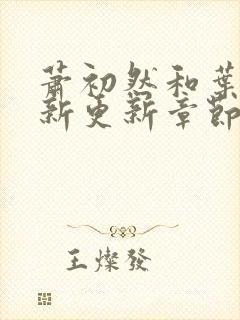 萧初然和葉
新更新章節
王燦發